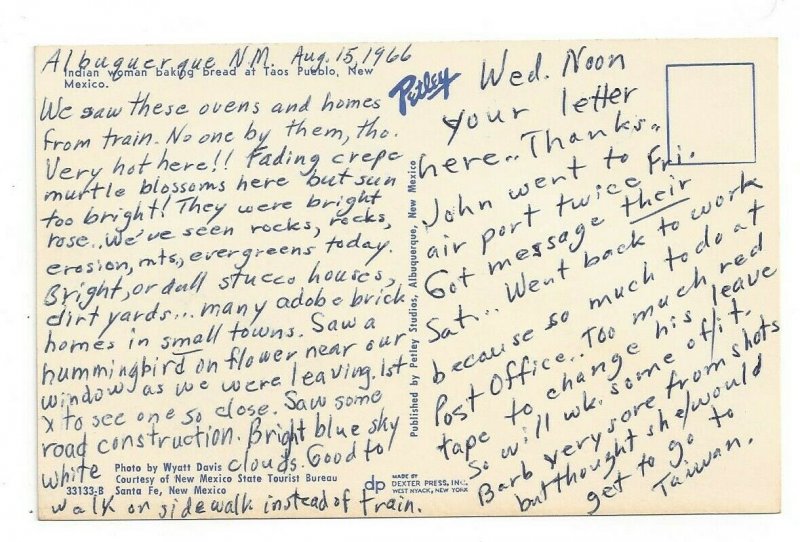 Albuquerque N.M. Aug. 15, 1966
Indian woman baking bread at Taos Pueblo, New
Mexico.
We saw these ovens and homes
from train. No one by them, tho.
Very hot here!! Fading crepe
murtle blossoms here but sun
too bright! They were bright
rose.. We've seen rocks, rocks,
erosion, mts., evergreens today.
Bright, or dull stucco houses,
dirt yards... many adobe brick
homes in small towns. Saw a
hummingbird on flower near our
window as we were leaving. 1st
x to see one so close. Saw some
road construction. Bright blue sky
white clouds. Good to
walk on sidewalk instead of train.
Photo by Wyatt Davis
Courtesy of New Mexico State Tourist Bureau
33133-B Santa Fe, New Mexico
Petley
Published by Petley Studios, Albuquerque, New Mexico
dp
MADE BY
DEXTER PRESS, INC.
WEST NYACK, NEW YORK
Wed. Noon
your letter
here.. Thanks..
John went to
air port twice Fri.
Got message their
Sat... Went back to work
because so much to do at
Post Office.. Too much red
tape to change his leave
So will wk. some of it.
Barb very sore from shots
but thought she/would
get to go to
Taiwan.